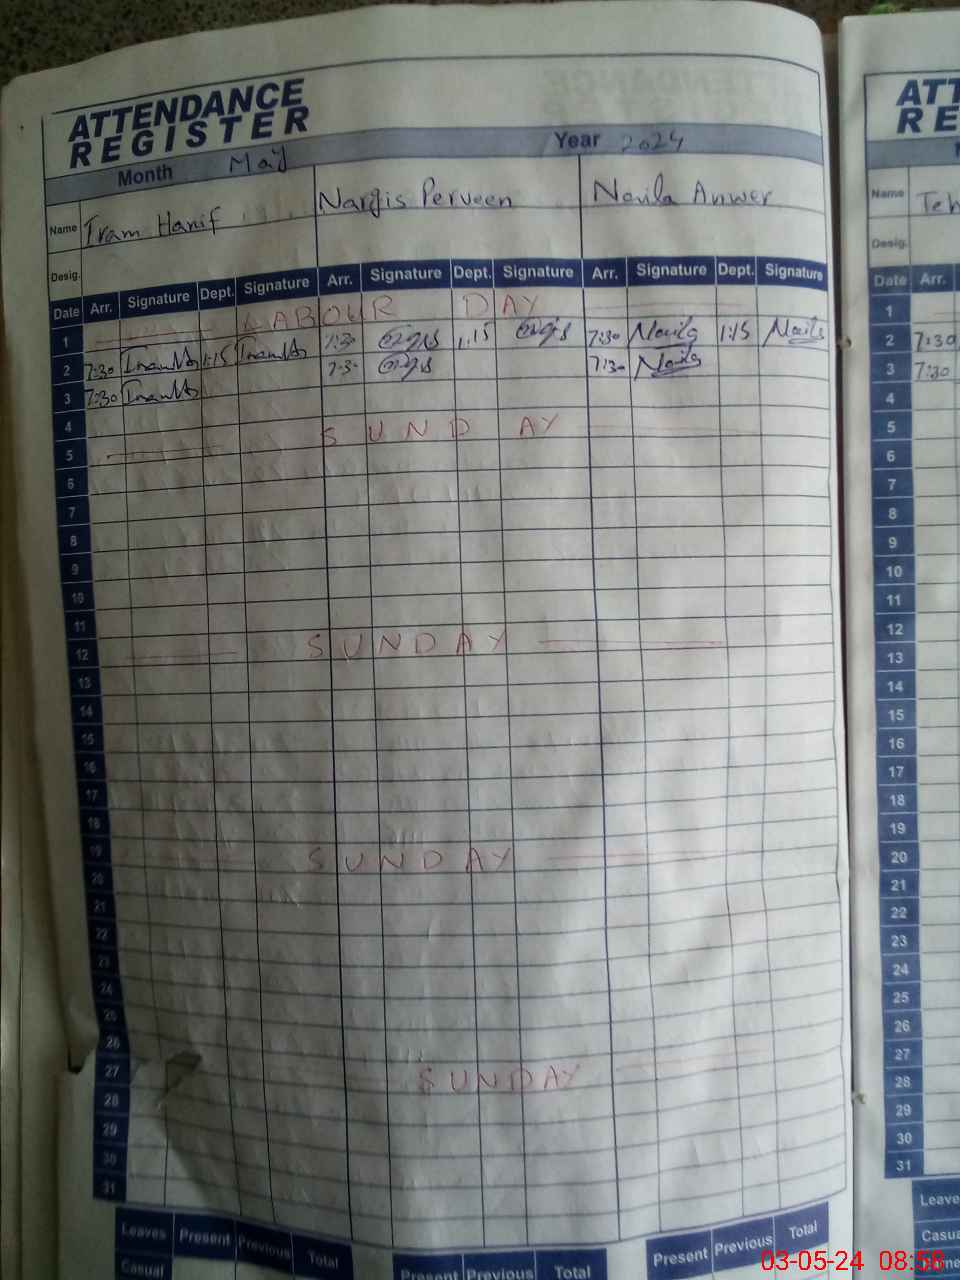 ATTENDANCE
REGISTER
Month May Year 2024
Name Iram Hanif Nargis Perveen Naila Anwer
Desig.
Date Arr. Signature Dept. Signature Arr. Signature Dept. Signature Arr. Signature Dept. Signature
1 LABOUR DAY
2 7:30 1:15 7:30 1.15 7:30 Naila 1:15 Naila
3 7:30 7:30 Naila
4
5 SUNDAY
6
7
8
9
10
11
12 SUNDAY
13
14
15
16
17
18
19 SUNDAY
20
21
22
23
24
25
26 SUNDAY
27
28
29
30
31
Leaves Present Previous Total Present Previous Total Present Previous Total
Casual
Name Teh
Desig.
Date Arr.
1
2 7:30
3 7:30
4
5
6
7
8
9
10
11
12
13
14
15
16
17
18
19
20
21
22
23
24
25
26
27
28
29
30
31
03-05-24